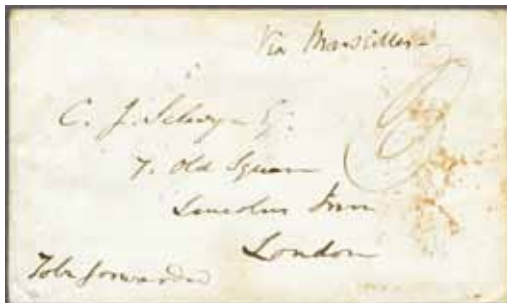 Via Marseilles
C. J. Selwyn Esq.
7. Old Square
Lincolns Inn
London
To be forwarded